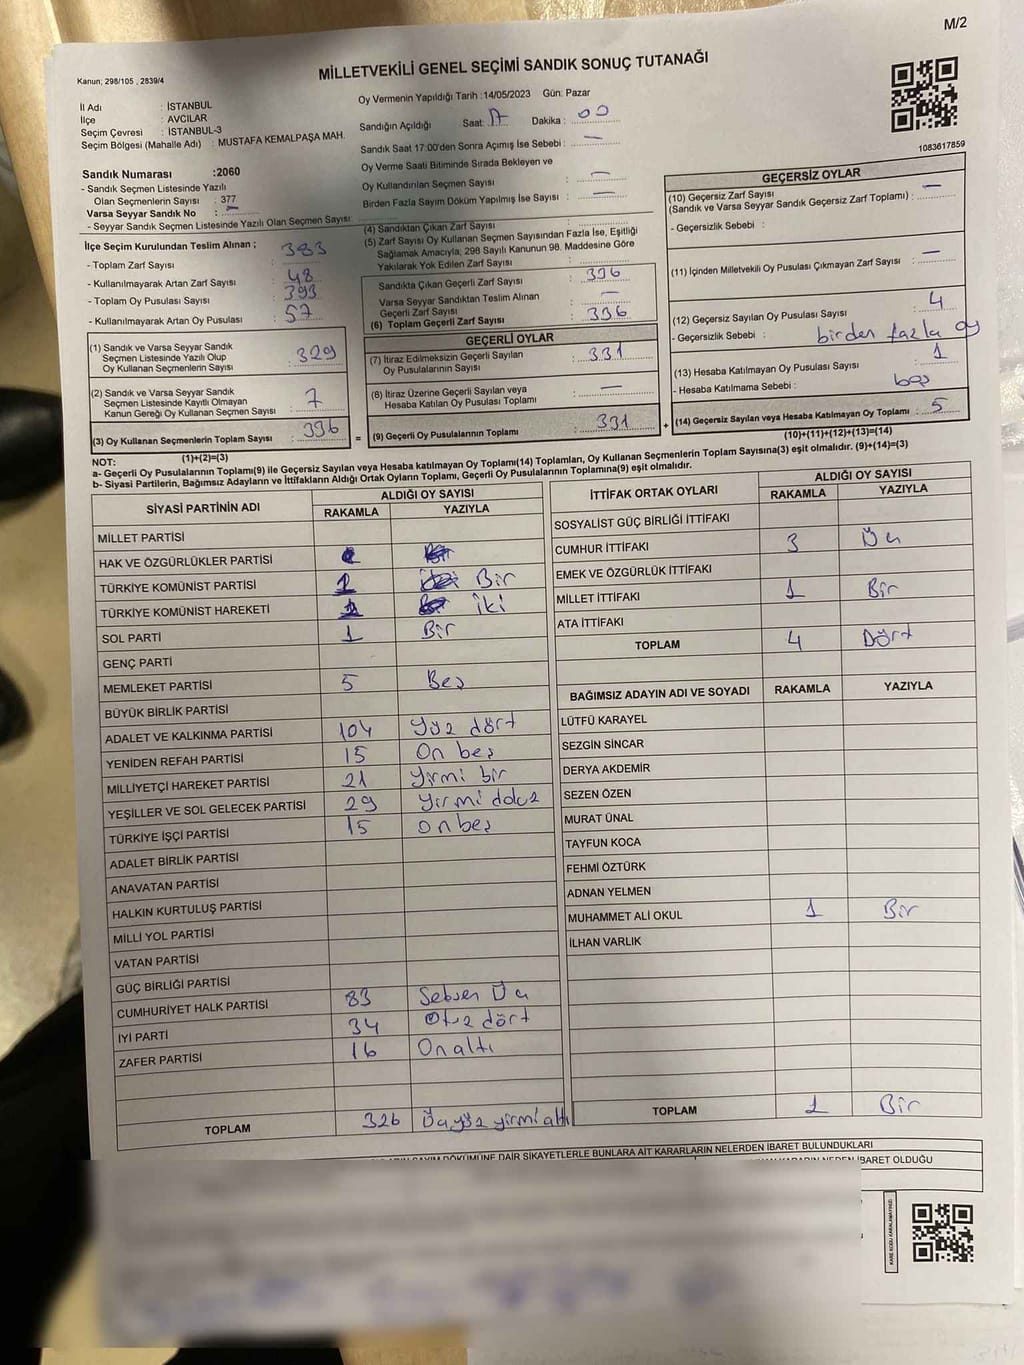 M/2
MİLLETVEKİLİ GENEL SEÇİMİ SANDIK SONUÇ TUTANAĞI
Kanun; 298/105 , 2839/4
İl Adı : İSTANBUL
İlçe : AVCILAR
Seçim Çevresi : İSTANBUL-3
Seçim Bölgesi (Mahalle Adı) : MUSTAFA KEMALPAŞA MAH.
Oy Vermenin Yapıldığı Tarih :14/05/2023 Gün: Pazar
Sandığın Açıldığı Saat: 17 Dakika : 00
Sandık Saat 17:00'den Sonra Açımış İse Sebebi : —
Oy Verme Saati Bitiminde Sırada Bekleyen ve
Oy Kullandırılan Seçmen Sayısı : —
Birden Fazla Sayım Döküm Yapılmış İse Sayısı : —
1083617859
Sandık Numarası :2060
- Sandık Seçmen Listesinde Yazılı
Olan Seçmenlerin Sayısı : 377
Varsa Seyyar Sandık No : —
- Seyyar Sandık Seçmen Listesinde Yazılı Olan Seçmen Sayısı
İlçe Seçim Kurulundan Teslim Alınan ;
- Toplam Zarf Sayısı : 383
- Kullanılmayarak Artan Zarf Sayısı : 48
- Toplam Oy Pusulası Sayısı : 393
- Kullanılmayarak Artan Oy Pusulası : 57
(1) Sandık ve Varsa Seyyar Sandık
Seçmen Listesinde Yazılı Olup
Oy Kullanan Seçmenlerin Sayısı : 329
(2) Sandık ve Varsa Seyyar Sandık
Seçmen Listesinde Kayıtlı Olmayan
Kanun Gereği Oy Kullanan Seçmen Sayısı : 7
(3) Oy Kullanan Seçmenlerin Toplam Sayısı : 336
(1)+(2)=(3)
(4) Sandıktan Çıkan Zarf Sayısı :
(5) Zarf Sayısı Oy Kullanan Seçmen Sayısından Fazla İse, Eşitliği
Sağlamak Amacıyla, 298 Sayılı Kanunun 98. Maddesine Göre
Yakılarak Yok Edilen Zarf Sayısı :
Sandıkta Çıkan Geçerli Zarf Sayısı : 336
Varsa Seyyar Sandıktan Teslim Alınan
Geçerli Zarf Sayısı : —
(6) Toplam Geçerli Zarf Sayısı : 336
GEÇERLİ OYLAR
(7) İtiraz Edilmeksizin Geçerli Sayılan
Oy Pusulalarının Sayısı : 331
(8) İtiraz Üzerine Geçerli Sayılan veya
Hesaba Katılan Oy Pusulası Toplamı : —
= (9) Geçerli Oy Pusulalarının Toplamı : 331 +
GEÇERSİZ OYLAR
(10) Geçersiz Zarf Sayısı
(Sandık ve Varsa Seyyar Sandık Geçersiz Zarf Toplamı) : —
- Geçersizlik Sebebi :
(11) İçinden Milletvekili Oy Pusulası Çıkmayan Zarf Sayısı : —
(12) Geçersiz Sayılan Oy Pusulası Sayısı : 4
- Geçersizlik Sebebi : birden fazla oy
(13) Hesaba Katılmayan Oy Pusulası Sayısı : 1
- Hesaba Katılmama Sebebi : boş
(14) Geçersiz Sayılan veya Hesaba Katılmayan Oy Toplamı : 5
(10)+(11)+(12)+(13)=(14)
NOT:
a- Geçerli Oy Pusulalarının Toplamı(9) ile Geçersiz Sayılan veya Hesaba katılmayan Oy Toplamı(14) Toplamları, Oy Kullanan Seçmenlerin Toplam Sayısına(3) eşit olmalıdır. (9)+(14)=(3)
b- Siyasi Partilerin, Bağımsız Adayların ve İttifakların Aldığı Ortak Oyların Toplamı, Geçerli Oy Pusulalarının Toplamına(9) eşit olmalıdır.
SİYASİ PARTİNİN ADI ALDIĞI OY SAYISI
RAKAMLA YAZIYLA
MİLLET PARTİSİ
HAK VE ÖZGÜRLÜKLER PARTİSİ
TÜRKİYE KOMÜNİST PARTİSİ 1 Bir
TÜRKİYE KOMÜNİST HAREKETİ 2 iki
SOL PARTİ 1 Bir
GENÇ PARTİ
MEMLEKET PARTİSİ 5 Beş
BÜYÜK BİRLİK PARTİSİ
ADALET VE KALKINMA PARTİSİ 104 Yüz dört
YENİDEN REFAH PARTİSİ 15 On beş
MİLLİYETÇİ HAREKET PARTİSİ 21 Yirmi bir
YEŞİLLER VE SOL GELECEK PARTİSİ 29 Yirmi dokuz
TÜRKİYE İŞÇİ PARTİSİ 15 on beş
ADALET BİRLİK PARTİSİ
ANAVATAN PARTİSİ
HALKIN KURTULUŞ PARTİSİ
MİLLİ YOL PARTİSİ
VATAN PARTİSİ
GÜÇ BİRLİĞİ PARTİSİ
CUMHURİYET HALK PARTİSİ 83 Seksen Üç
İYİ PARTİ 34 Otuz dört
ZAFER PARTİSİ 16 On altı
TOPLAM 326 Üçyüz yirmi altı
İTTİFAK ORTAK OYLARI ALDIĞI OY SAYISI
RAKAMLA YAZIYLA
SOSYALİST GÜÇ BİRLİĞİ İTTİFAKI
CUMHUR İTTİFAKI 3 Üç
EMEK VE ÖZGÜRLÜK İTTİFAKI
MİLLET İTTİFAKI 1 Bir
ATA İTTİFAKI
TOPLAM 4 Dört
BAĞIMSIZ ADAYIN ADI VE SOYADI RAKAMLA YAZIYLA
LÜTFÜ KARAYEL
SEZGİN SİNCAR
DERYA AKDEMİR
SEZEN ÖZEN
MURAT ÜNAL
TAYFUN KOCA
FEHMİ ÖZTÜRK
ADNAN YELMEN
MUHAMMET ALİ OKUL 1 Bir
İLHAN VARLIK
TOPLAM 1 Bir
SAYIM DÖKÜMÜNE DAİR ŞİKAYETLERLE BUNLARA AİT KARARLARIN NELERDEN İBARET BULUNDUKLARI
KARARIN NEDEN İBARET OLDUĞU
KARE KODU KARALAMAYINIZ!